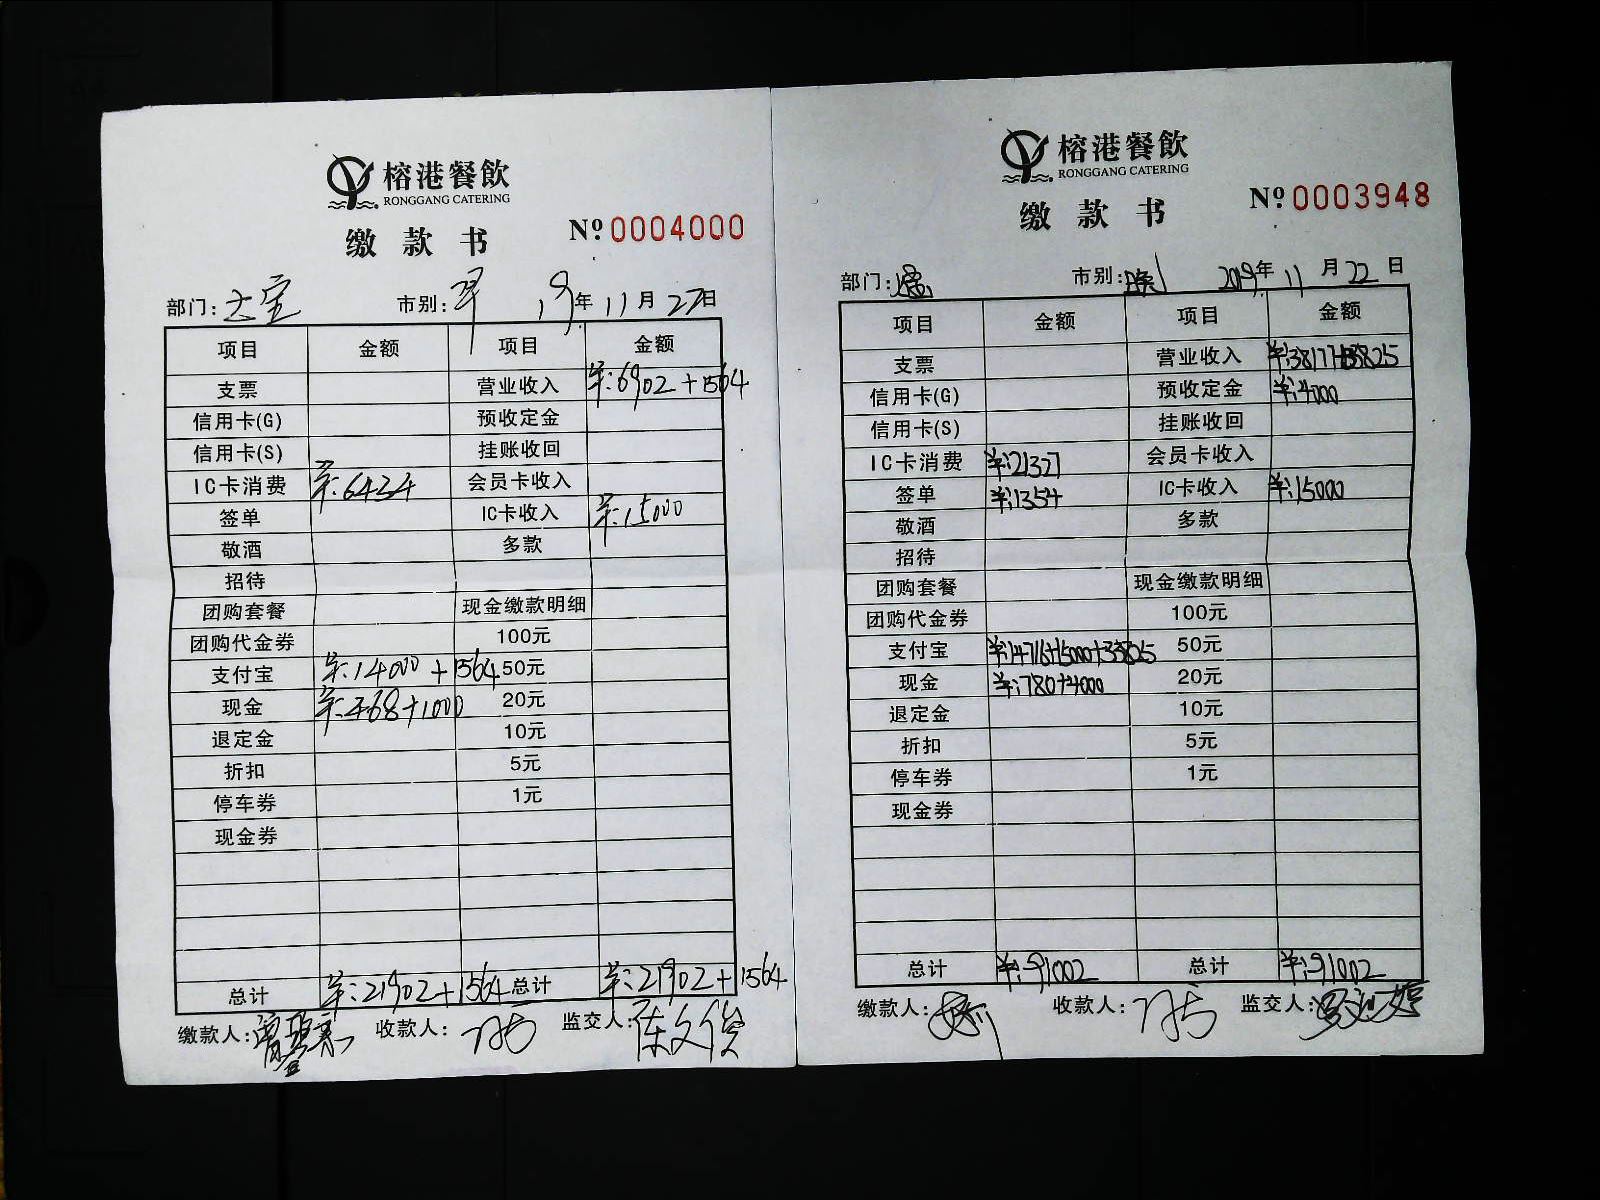 榕港餐飲
RONGGANG CATERING
缴款书
№0004000
部门: 市别:早 19年11月27日
项目 金额 项目 金额
支票 营业收入 ¥:6902+1564
信用卡(G) 预收定金
信用卡(S) 挂账收回
IC卡消费 ¥:6434 会员卡收入
签单 IC卡收入 ¥:15000
敬酒 多款
招待
团购套餐 现金缴款明细
团购代金券 100元
支付宝 ¥:14000+1564 50元
现金 ¥:468+1000 20元
退定金 10元
折扣 5元
停车券 1元
现金券
总计 ¥:21902+1564 总计 ¥:21902+1564
缴款人: 收款人: 监交人:
榕港餐飲
RONGGANG CATERING
缴款书
№0003948
部门: 市别:晚 2019年11月22日
项目 金额 项目 金额
支票 营业收入 ¥:38177+33825
信用卡(G) 预收定金 ¥:4000
信用卡(S) 挂账收回
IC卡消费 ¥:21327 会员卡收入
签单 ¥:1354 IC卡收入 ¥:15000
敬酒 多款
招待
团购套餐 现金缴款明细
团购代金券 100元
支付宝 ¥:14716+15000+33825 50元
现金 ¥:780+4000 20元
退定金 10元
折扣 5元
停车券 1元
现金券
总计 ¥:91002 总计 ¥:91002
缴款人: 收款人: 监交人: